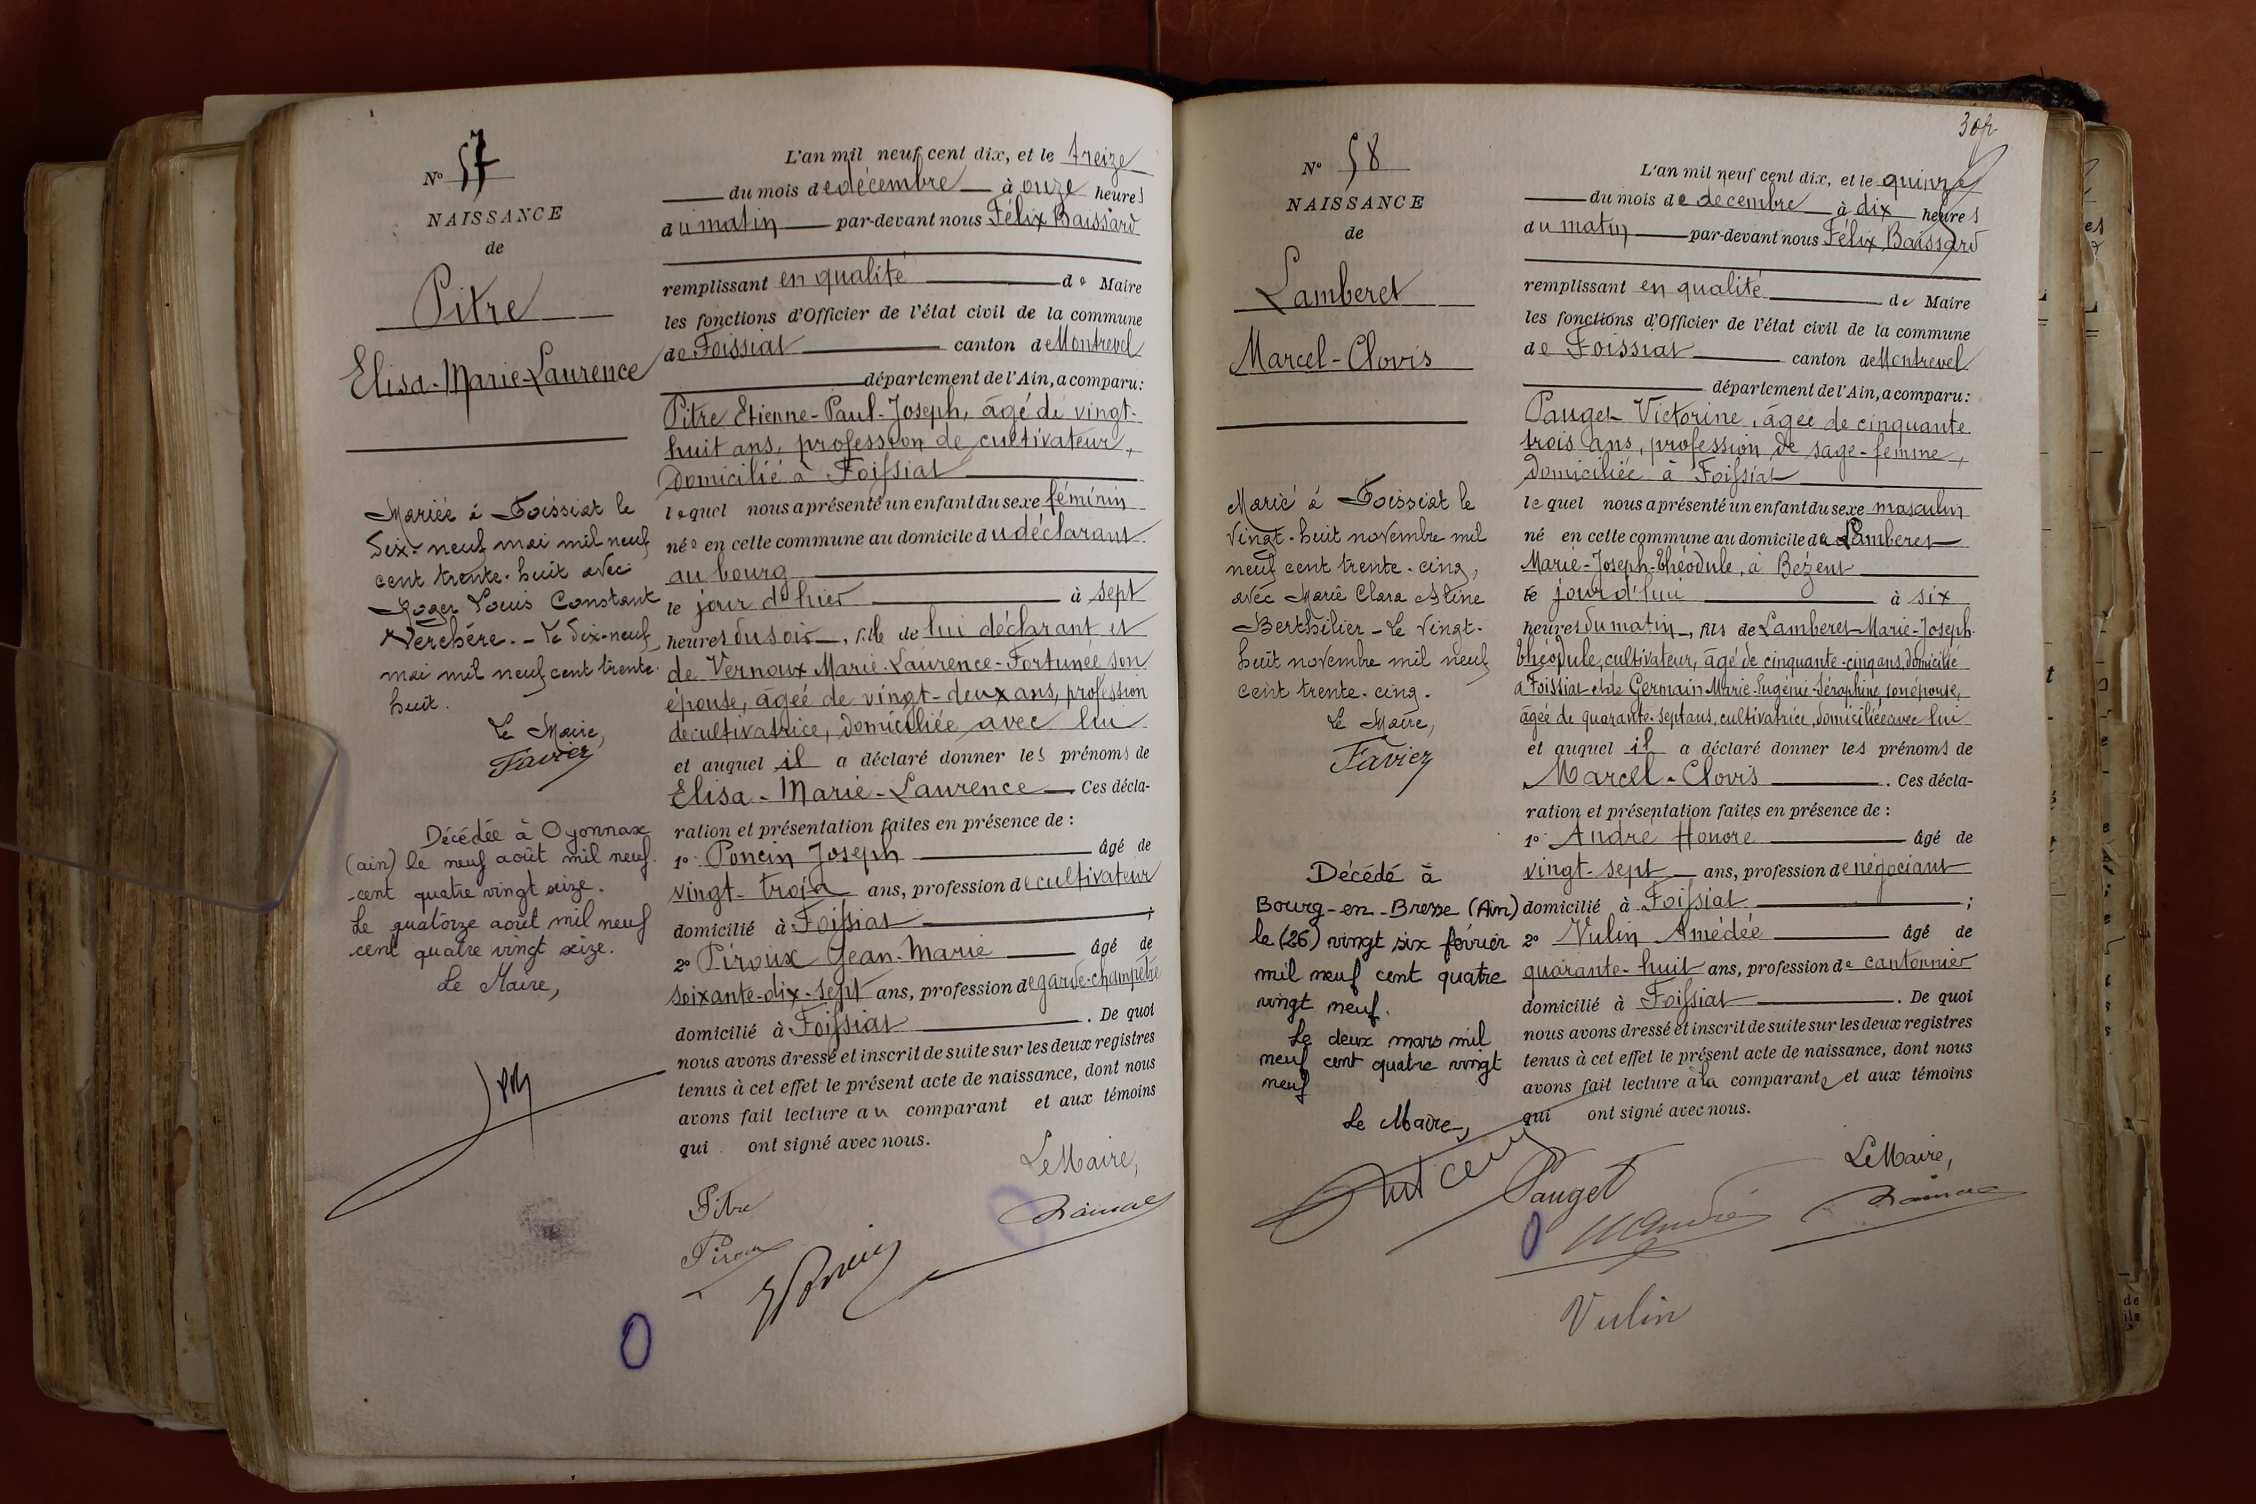 N° 57
NAISSANCE
de
Pitre
Elisa-Marie-Laurence
Mariée à Foissiat le
dix-neuf mai mil neuf
cent trente-huit avec
Roger Louis Constant
Verchère. - Le dix-neuf
mai mil neuf cent trente-
huit.
Le Maire,
Favier
Décédée à Oyonnax
(ain) le neuf août mil neuf
-cent quatre vingt seize.
Le quatorze août mil neuf
cent quatre vingt seize.
Le Maire,
L'an mil neuf cent dix, et le treize
du mois de décembre à onze heures
du matin par-devant nous Félix Baissard
remplissant en qualité de Maire
les fonctions d'Officier de l'état civil de la commune
de Foissiat canton de Montrevel
département de l'Ain, a comparu:
Pitre Etienne-Paul-Joseph, âgé de vingt-
huit ans, profession de cultivateur,
domicilié à Foissiat
lequel nous a présenté un enfant du sexe féminin
née en cette commune au domicile du déclarant
au bourg
le jour d'hier à sept
heures du soir, fille de lui déclarant et
de Vernoux Marie-Laurence-Fortunée son
épouse, âgée de vingt-deux ans, profession
de cultivatrice, domiciliée avec lui
et auquel il a déclaré donner les prénoms de
Elisa-Marie-Laurence. Ces décla-
ration et présentation faites en présence de :
1° Poncin Joseph âgé de
vingt-trois ans, profession de cultivateur
domicilié à Foissiat ;
2° Piroux Jean-Marie âgé de
soixante-dix-sept ans, profession de garde-champêtre
domicilié à Foissiat. De quoi
nous avons dressé et inscrit de suite sur les deux registres
tenus à cet effet le présent acte de naissance, dont nous
avons fait lecture au comparant et aux témoins
qui ont signé avec nous.
Le Maire,
Pitre
Piroux
Poncin
30
N° 58
NAISSANCE
de
Lamberet
Marcel-Clovis
Marié à Foissiat le
vingt-huit novembre mil
neuf cent trente-cinq,
avec Marie Clara Aline
Berthilier - Le vingt-
huit novembre mil neuf
cent trente-cinq.
Le Maire,
Favier
Décédé à
Bourg-en-Bresse (Ain)
le (26) vingt six février
mil neuf cent quatre
vingt neuf.
Le deux mars mil
neuf cent quatre vingt
neuf
Le Maire,
L'an mil neuf cent dix, et le quinze
du mois de décembre à dix heures
du matin par-devant nous Félix Baissard
remplissant en qualité de Maire
les fonctions d'Officier de l'état civil de la commune
de Foissiat canton de Montrevel
département de l'Ain, a comparu:
Pauget Victorine, âgée de cinquante
trois ans, profession de sage-femme,
domiciliée à Foissiat
lequel nous a présenté un enfant du sexe masculin
né en cette commune au domicile de Lamberet
Marie-Joseph-Théodule, à Bézent
le jour d'hui à six
heures du matin, fils de Lamberet Marie-Joseph-
Théodule, cultivateur, âgé de cinquante-cinq ans, domicilié
à Foissiat et de Germain Marie-Eugénie-Séraphine, son épouse,
âgée de quarante-sept ans, cultivatrice, domiciliée avec lui
et auquel il a déclaré donner les prénoms de
Marcel-Clovis. Ces décla-
ration et présentation faites en présence de :
1° André Honoré âgé de
vingt-sept ans, profession de négociant
domicilié à Foissiat ;
2° Vulin Amédée âgé de
quarante-huit ans, profession de cantonnier
domicilié à Foissiat. De quoi
nous avons dressé et inscrit de suite sur les deux registres
tenus à cet effet le présent acte de naissance, dont nous
avons fait lecture à la comparante et aux témoins
qui ont signé avec nous.
Le Maire,
Pauget
H André
Vulin